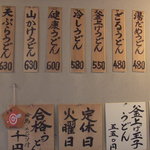 湯だめうどん
480
ざるうどん
480
釜上げうどん
580
冷しうどん
550
健康うどん
600
山かけうどん
630
天ぷらうどん
630
釜上げ玉子うどん
五五〇円
定休日
火曜日
合格うどん
千円